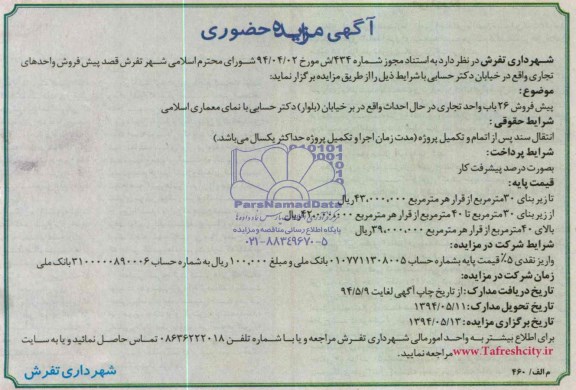 آگهی مزایده حضوری
شهرداری تفرش در نظر دارد به استناد مجوز شماره ۴۳۴/ش مورخ ۹۴/۰۴/۰۲ شورای محترم اسلامی شهر تفرش قصد پیش فروش واحدهای
تجاری واقع در خیابان دکتر حسابی با شرایط ذیل را از طریق مزایده برگزار نماید:
موضوع:
پیش فروش ۲۶ باب واحد تجاری در حال احداث واقع در بر خیابان (بلوار) دکتر حسابی با نمای معماری اسلامی
شرایط حقوقی:
انتقال سند پس از اتمام و تکمیل پروژه (مدت زمان اجرا و تکمیل پروژه حداکثر یکسال می‌باشد.)
شرایط پرداخت:
بصورت درصد پیشرفت کار
قیمت پایه:
تا زیر بنای ۳۰مترمربع از قرار هر مترمربع ۴۳,۰۰۰,۰۰۰ریال
از زیر بنای ۳۰مترمربع تا ۴۰مترمربع از قرار هر مترمربع ریال
بالای ۴۰مترمربع از قرار هر مترمربع ۳۹,۰۰۰,۰۰۰ریال
ParsNamadData
پایگاه اطلاع رسانی مناقصه و مزایده
۰۲۱-۸۸۳۴۹۶۷۰-۵
شرایط شرکت در مزایده:
واریز نقدی ۵٪ قیمت پایه بشماره حساب ۰۱۰۷۷۱۱۳۰۸۰۰۵ بانک ملی و مبلغ ۱۰۰,۰۰۰ ریال به شماره حساب ۳۱۰۰۰۰۰۸۹۰۰۰۶ بانک ملی
زمان شرکت در مزایده:
تاریخ دریافت مدارک: از تاریخ چاپ آگهی لغایت ۹۴/۵/۹
تاریخ تحویل مدارک: ۱۳۹۴/۰۵/۱۱
تاریخ برگزاری مزایده: ۱۳۹۴/۰۵/۱۳
برای اطلاع بیشتر به واحد امور مالی شهرداری تفرش مراجعه و یا با شماره تلفن ۰۸۶۳۶۲۲۲۰۱۸ تماس حاصل نمائید و یا به سایت
www.Tafreshcity.ir مراجعه نمایید.
شهرداری تفرش
م الف/ ۴۶۰